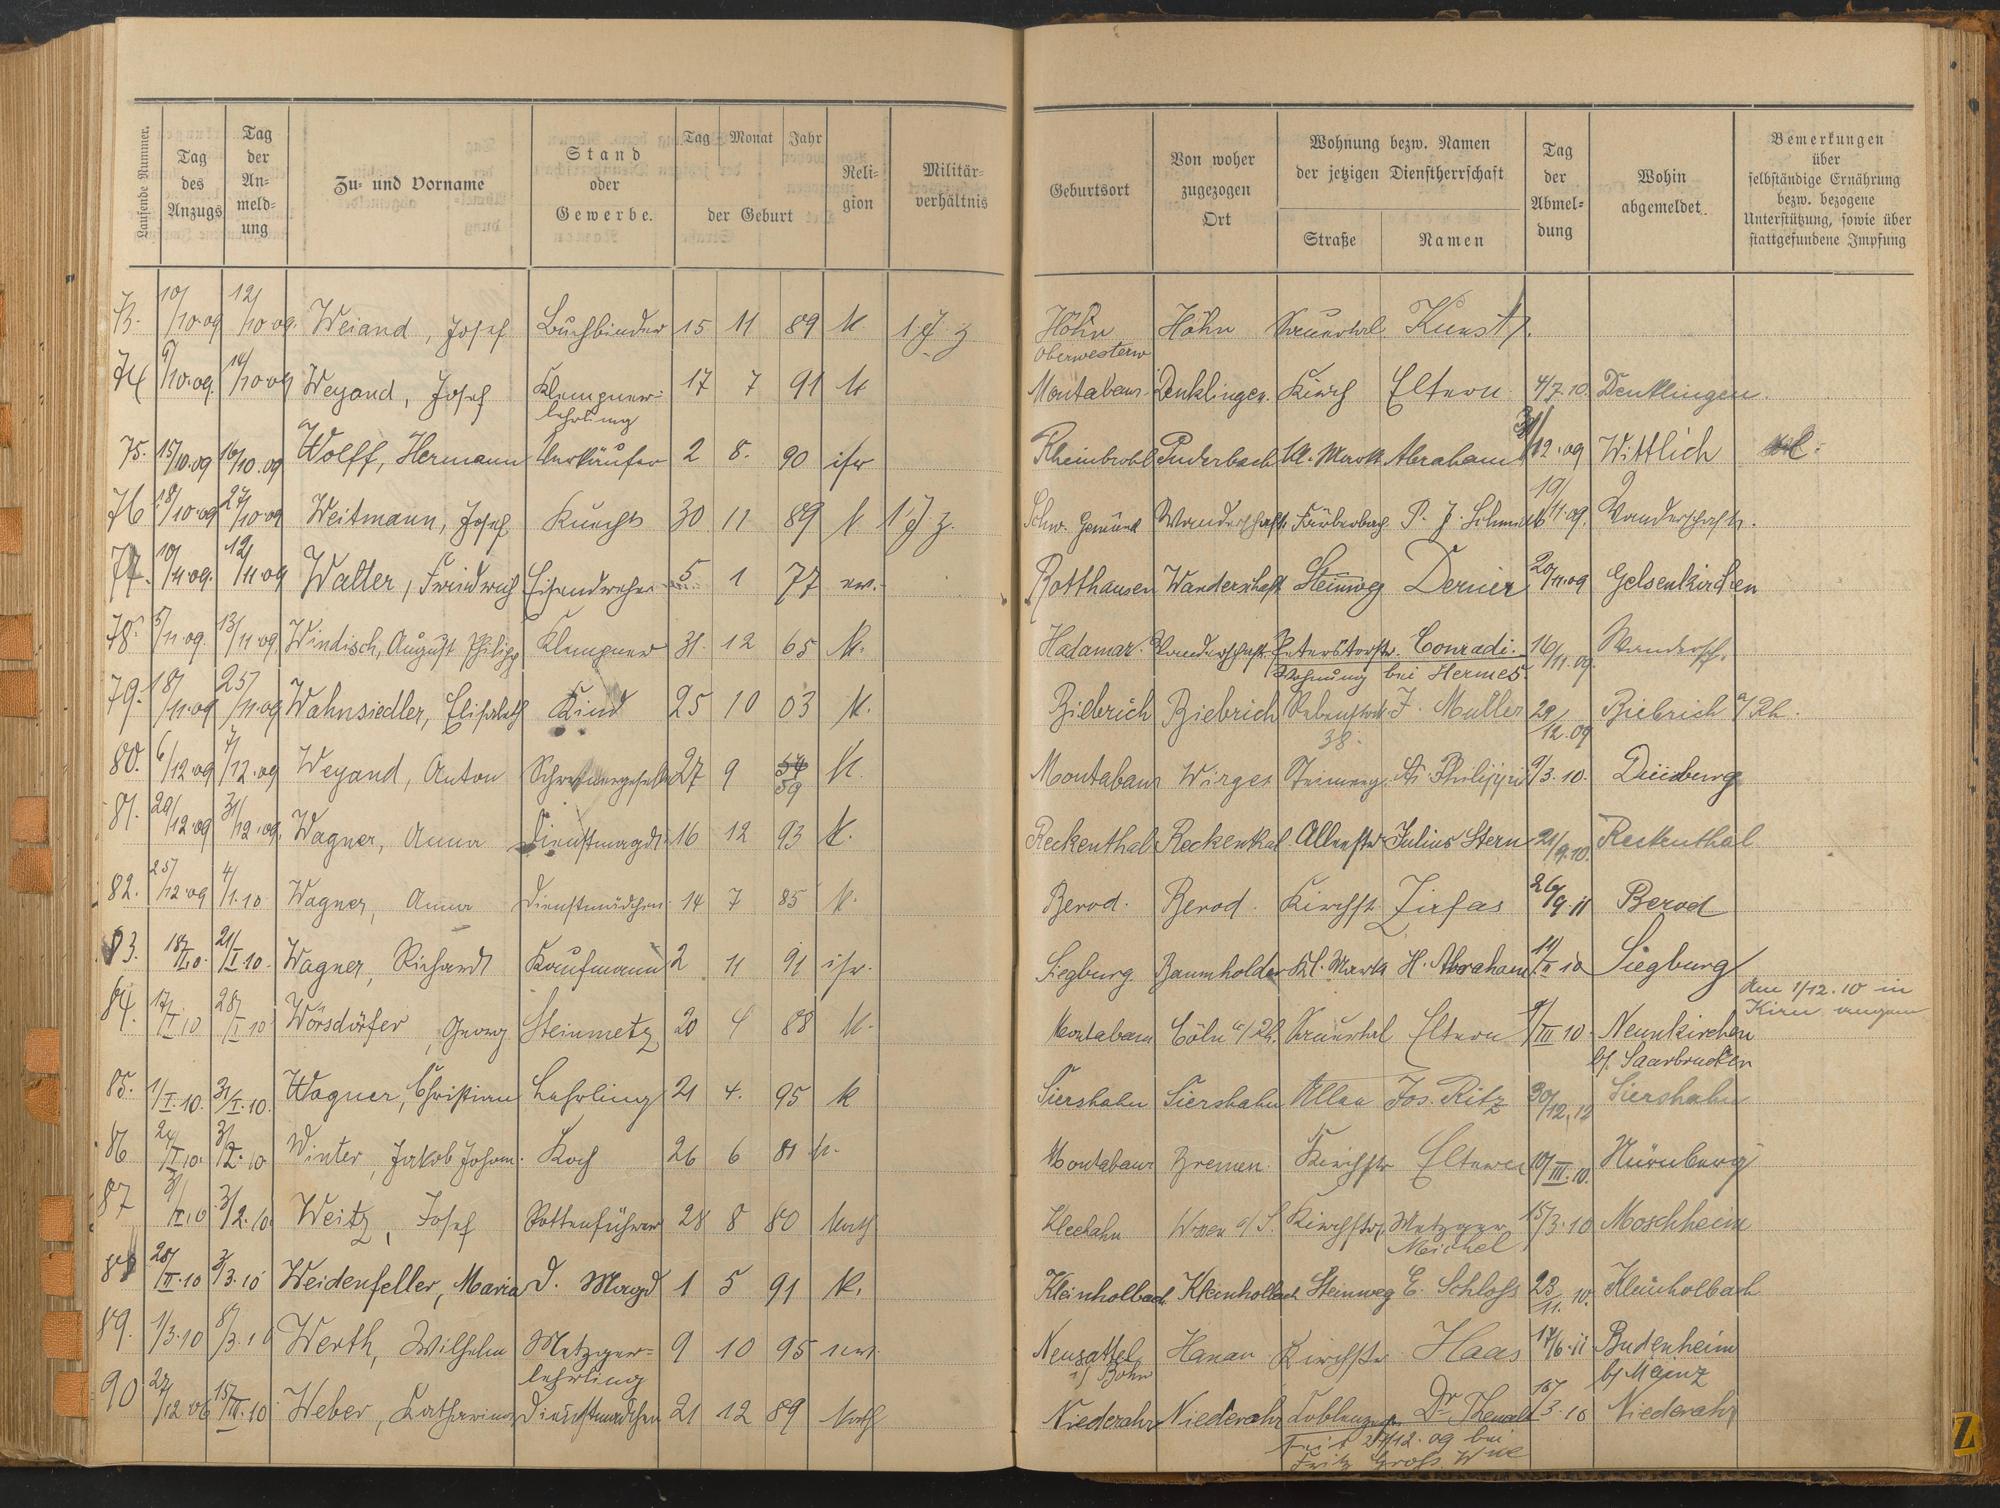 Laufende Nummer.
Tag des Anzugs
Tag der Anmeldung
Zu- und Vorname
Stand oder Gewerbe.
Tag Monat Jahr
der Geburt
Religion
Militärverhältnis
Geburtsort
Von woher zugezogen Ort
Wohnung bezw. Namen der jetzigen Dienstherrschaft
Straße Namen
Tag der Abmeldung
Wohin abgemeldet.
Bemerkungen über selbständige Ernährung bezw. bezogene Unterstützung, sowie über stattgefundene Impfung
73. 10/10.09 12/10.09. Weiand, Josef Buchbinder 15 11 89 K. 1 J. z Höhn Höhn Sauertal Kunst
Oberwesterw
74 9/10.09. 14/10 09 Weyand, Josef Klempner- 17 7 91 K Montabaur Denklingen. Kirch Eltern 4/7.10. Denklingen.
lehrling
75. 15/10.09 16/10.09 Wolff, Hermann Verkäufer 2 8. 90 isr Rheinbrohl Puderbach Kl. Markt Abraham 31/12.09 Wittlich
76 18/10.09 27/10.09 Weitmann, Josef Knecht 30 11 89 K 1 J z. Schw. Gemünd Wanderschaft P. J. 19/11.09. Wanderschaft.
77. 10/11.09. 12/11.09 Walter, Friedrich Eisendreher 5 1 77 ev. Rotthausen Wanderschaft Steinweg Dernier 20/11.09 Gelsenkirchen
78. 5/11.09. 13/11.09 Windisch, August Philipp Klempner 31. 12 65 K. Hadamar. Wanderschaft. Peterstorstr. Conradi. 16/11.09. Wandersch.
Wohnung bei Hermes.
79. 18/11.09 25/11.09 Wahnsiedler, Elisabeth Kind 25 10 03 K. Biebrich Biebrich Rebenstock J. Müller 29/12.09 Biebrich a/Rh.
38.
80. 6/12.09 7/12.09 Weyand, Anton Schreinergeselle 27 9 59 K. Montabaur Wirges Steinweg. Philippi 9/3.10. Duisburg
81. 29/12.09 31/12.09. Wagner, Anna Dienstmagd 16 12 93 K. Reckenthal Reckenthal Alleestr Julius Stern 21/9.10. Reckenthal
82. 25/12 09 4/1.10 Wagner, Anna Dienstmädchen. 14 7 85 K. Berod. Berod. Kirchstr Zirfas 26/9.11 Berod
83. 18/I.10. 21/I.10. Wagner, Richard Kaufmann 2 11 91 isr. Siegburg Baumholder Kl. Markt H. Abraham 14/II 10 Siegburg
den 1/12.10 in
Kirn
84. 17/I 10 28/I 10 Wörsdörfer, Georg Steinmetz 20 4 88 K. Montabaur Cöln a/Rh. Sauertal Eltern 9/III 10. Neunkirchen
b/. Saarbrücken
85. 1/I.10. 31/I.10. Wagner, Christian Lehrling 21 4. 95 K Siershahn Siershahn Allee Jos. Ritz 30/12.12 Siershahn
86 24/I 10. 3/II.10 Winter, Jakob Johann. Koch 26 6 81 K. Montabaur Bremen. Kirchstr Eltern 10/III.10. Nürnberg
87 3/II.10. 3/2.10. Weitz, Josef Rottenführer 28 8 80 Kath Kirchstr Metzger 15/3.10 Moschheim
Meichel
88 28/II.10 3/3.10 Weidenfeller, Maria D. Magd 1 5 91 K. Kleinholbach Kleinholbach Steinweg E. Schloss 23/11.10. Kleinholbach
89. 1/3.10 8/3.10 Werth, Wilhelm Metzger- 9 10 95 ev. Neusattel Hanau Kirchstr Haas 17/6.11 Budenheim
lehrling i/ Böhm b/ Mainz
90 27/12 06 15/III.10 Weber, Katharina Dienstmädchen 21 12 89 Kath Niederahr Niederahr Coblenzerstr Dr Thewalt 18/3.10 Niederahr
seit 27/12.09 bei
Fritz Gross
Z